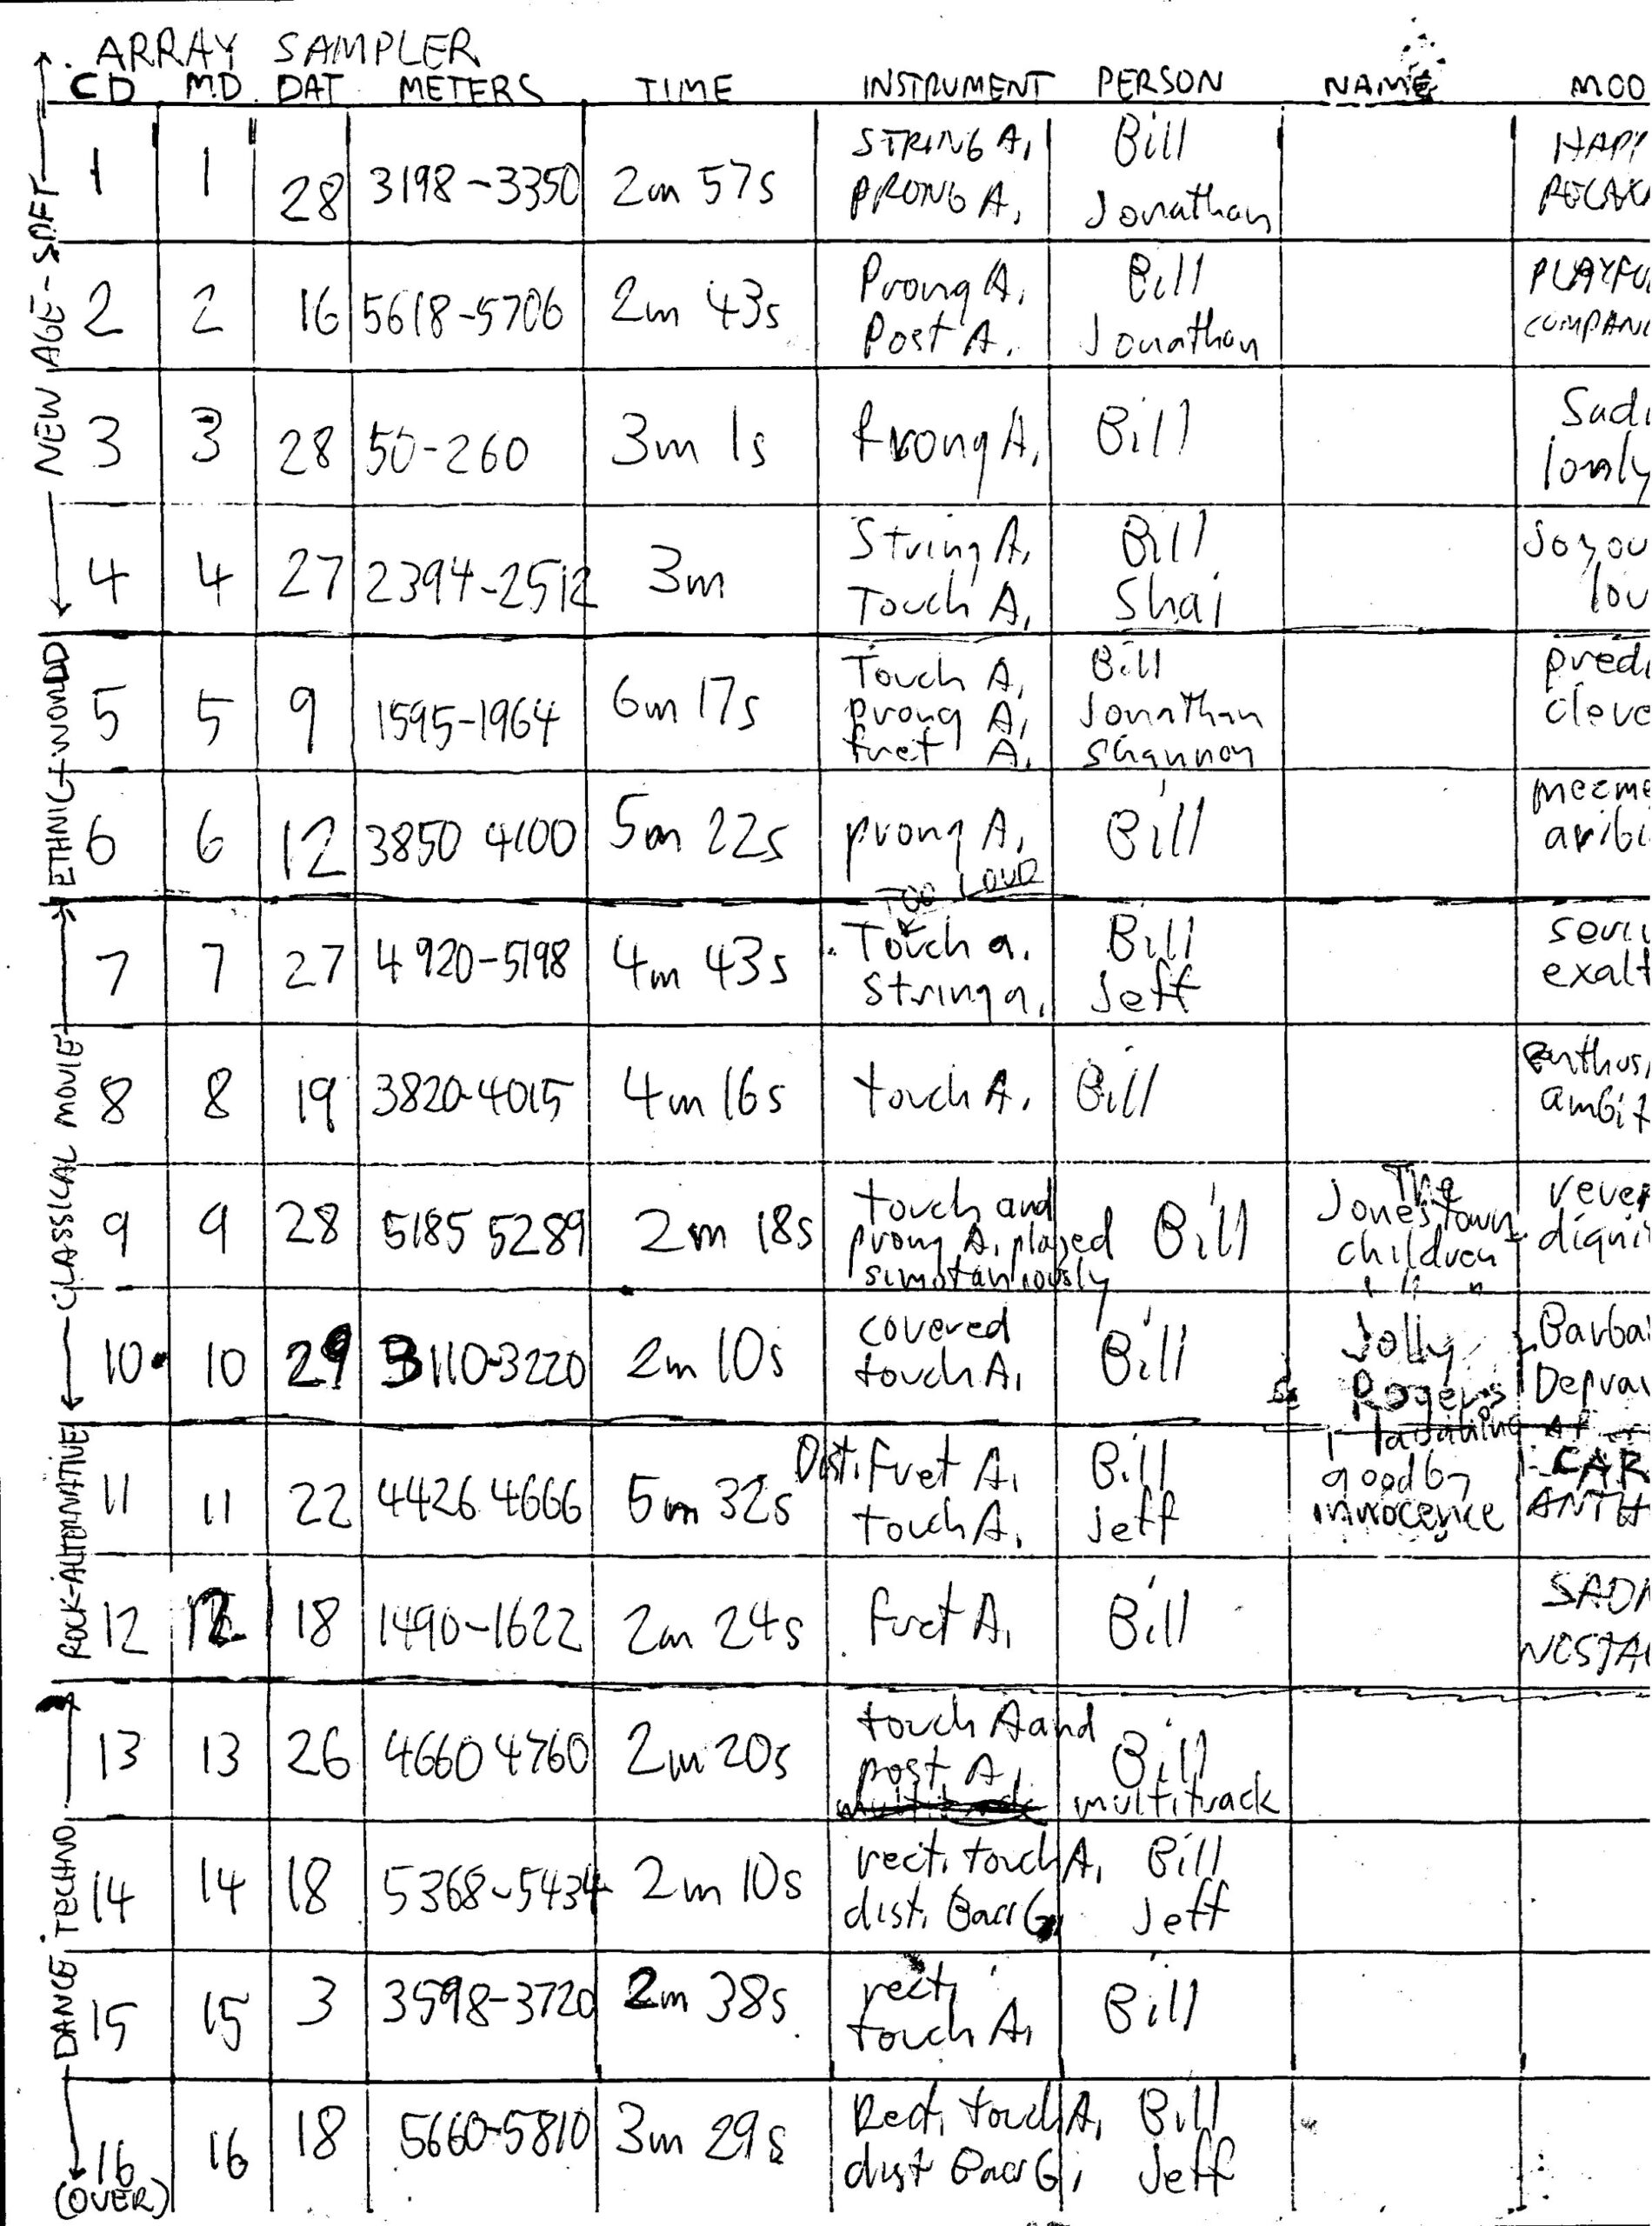 ARRAY SAMPLER
CD MD DAT METERS TIME INSTRUMENT PERSON NAME MOO
NEW AGE-SOFT
1 1 28 3198-3350 2m 57s STRING A. PRONG A. Bill Jonathan HAPP RELAX
2 2 16 5618-5706 2m 43s Prong A. Post A. Bill Jonathan PLAYFU COMPAN
3 3 28 50-260 3m 1s Prong A. Bill Sad lonly
4 4 27 2394-2512 3m String A. Touch A. Bill Shai Joyou lou
ETHNIC-WORLD
5 5 9 1595-1964 6m 17s Touch A. prong A. fret A. Bill Jonathan Shannon pred cleve
6 6 12 3850 4100 5m 22s prong A. Bill mezme aribi
TOO LOUD
CLASSICAL MOVIE
7 7 27 4920-5198 4m 43s Touch a. String a. Bill Jeff seri exalt
8 8 19 3820-4015 4m 16s touch A. Bill enthus ambit
9 9 28 5185 5289 2m 18s touch and prong A. played simotaniously Bill The Jonestown children rever digni
10 10 29 3110-3220 2m 10s covered touch A. Bill Jolly Rogers Barba Deprav
ROCK-ALTERNATIVE
11 11 22 4426 4666 5m 32s Dist. Fret A. touch A. Bill Jeff goodby innocence CAR ANTH
12 12 18 1490-1622 2m 24s fret A. Bill SADN NOSTA
DANCE TECHNO
13 13 26 4660 4760 2m 20s touch A and post A. Bill multitrack
14 14 18 5368-5434 2m 10s rect. touch A. dist. Bass G. Bill Jeff
15 15 3 3598-3720 2m 38s rect. touch A. Bill
16 16 18 5660-5810 3m 29s Rect. touch A. dist Bass G. Bill Jeff
(OVER)